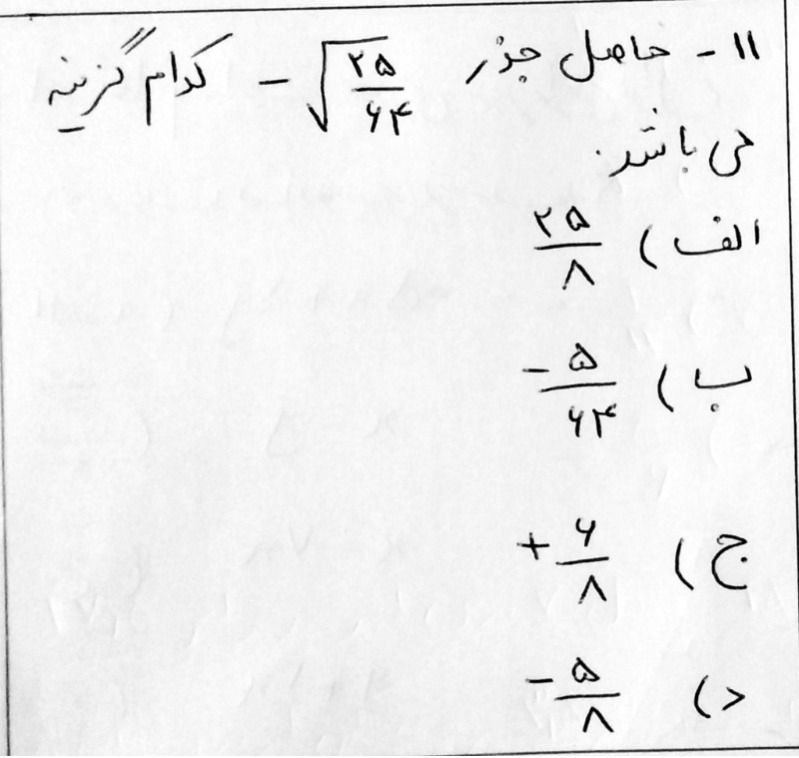 ۱۱ - حاصل جذر -√۲۵/۶۴ کدام گزینه
می باشد.
الف) ۲۵/۸
ب) -۵/۶۴
ج) +۶/۸
د) -۵/۸